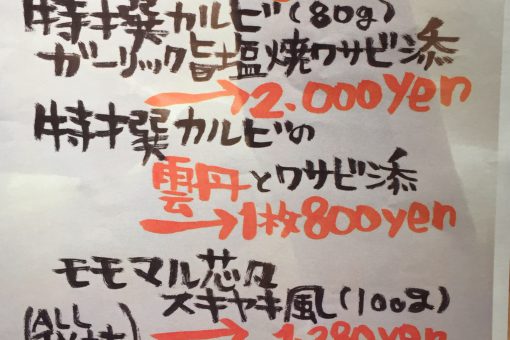 特撰カルビ(80g)
ガーリック旨塩焼ワサビ添
→2.000yen
特撰カルビの
雲丹とワサビ添
→1枚800yen
モモマル芯々
スキヤキ風(100g)
(ALL
→1.280yen